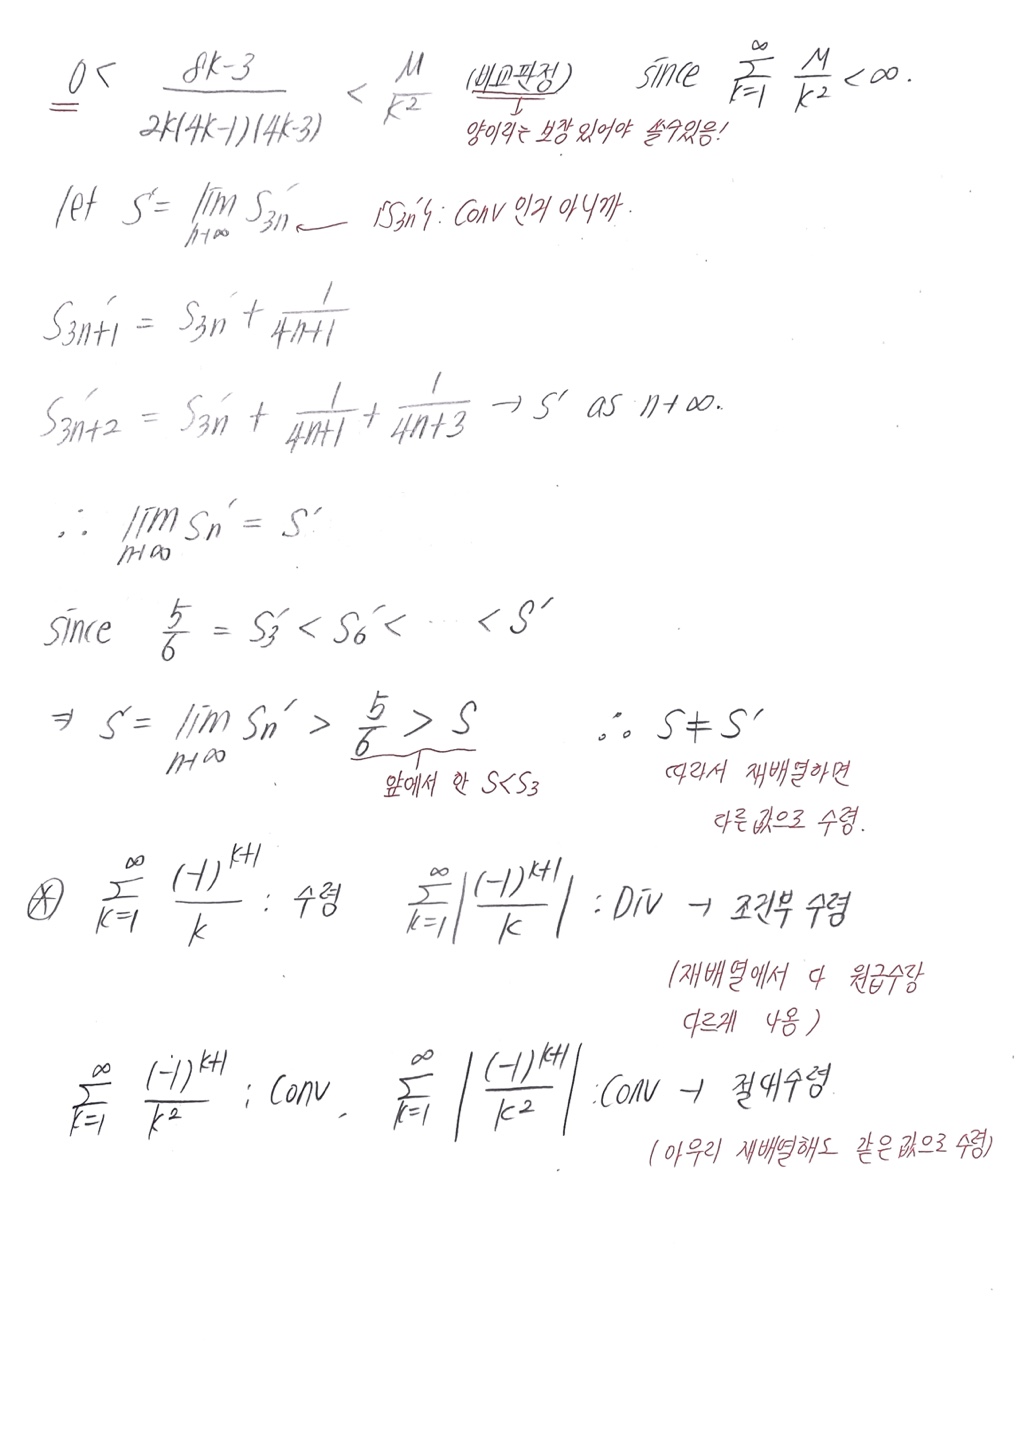 0 < \frac{8k-3}{2k(4k-1)(4k-3)} < \frac{M}{k^2} (비교판정) since \sum_{k=1}^{∞} \frac{M}{k^2} < ∞.
양이라는 보장있어야 쓸수있음!
let S' = \lim_{n→∞} S_{3n}' ← {S_{3n}'} : Conv 인지 아니까.
S_{3n+1}' = S_{3n}' + \frac{1}{4n+1}
S_{3n+2}' = S_{3n}' + \frac{1}{4n+1} + \frac{1}{4n+3} → S' as n→∞.
∴ \lim_{n→∞} Sn' = S'
since \frac{5}{6} = S_3' < S_6' < ··· < S'
⇒ S' = \lim_{n→∞} Sn' > \frac{5}{6} > S ∴ S ≠ S'
앞에서 한 S<S_3
따라서 재배열하면
다른 값으로 수렴.
⊛ \sum_{k=1}^{∞} \frac{(-1)^{k+1}}{k} : 수렴 \sum_{k=1}^{∞} |\frac{(-1)^{k+1}}{k}| : Div → 조건부 수렴
(재배열에서 다 원급수랑
다르게 나옴)
\sum_{k=1}^{∞} \frac{(-1)^{k+1}}{k^2} : Conv, \sum_{k=1}^{∞} |\frac{(-1)^{k+1}}{k^2}| : Conv → 절대수렴
(아무리 재배열해도 같은 값으로 수렴)